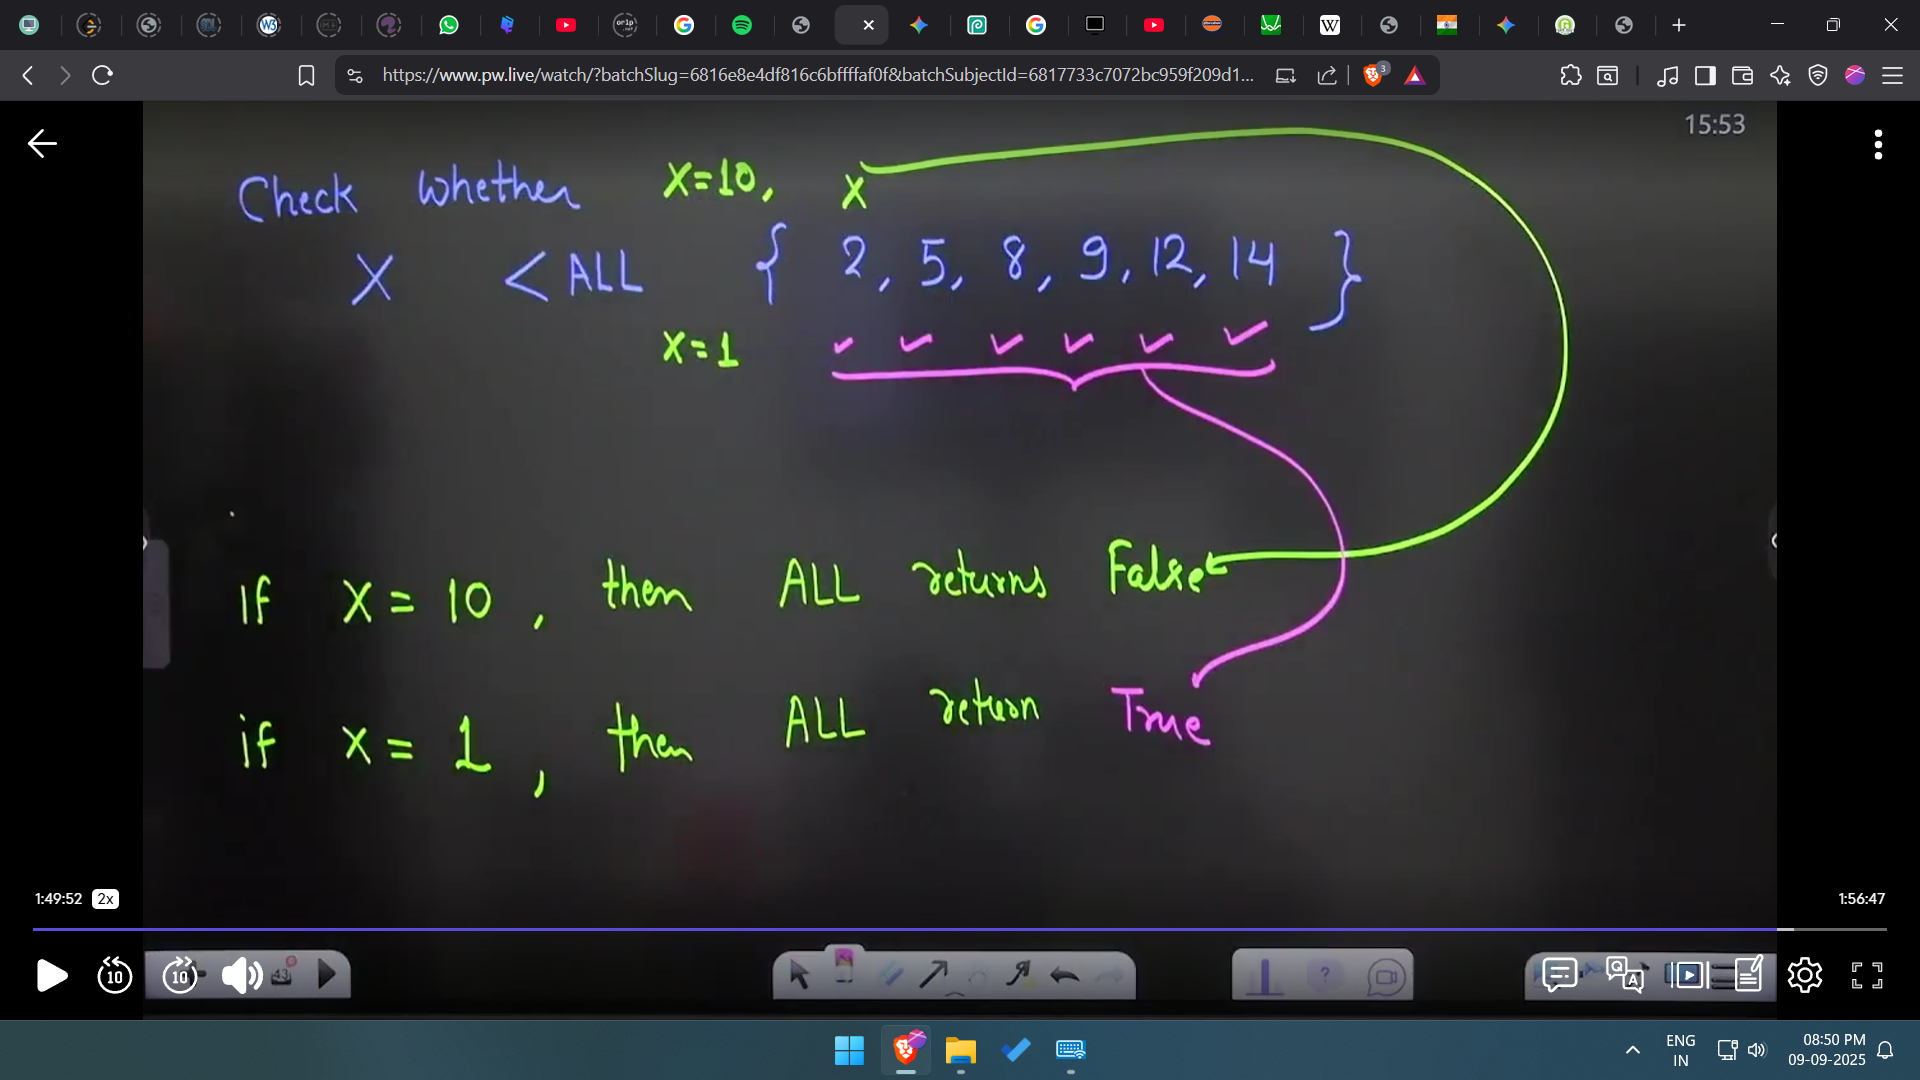 https://www.pw.live/watch/?batchSlug=6816e8e4df816c6bffffaf0f&batchSubjectId=6817733c7072bc959f209d1...
3
15:53
Check whether X=10, X
X < ALL { 2, 5, 8, 9, 12, 14 }
X=1
If X = 10 , then ALL returns False
if X = 1 , then ALL return True
1:49:52 2x 1:56:47
10 10 43
ENG 08:50 PM
IN 09-09-2025